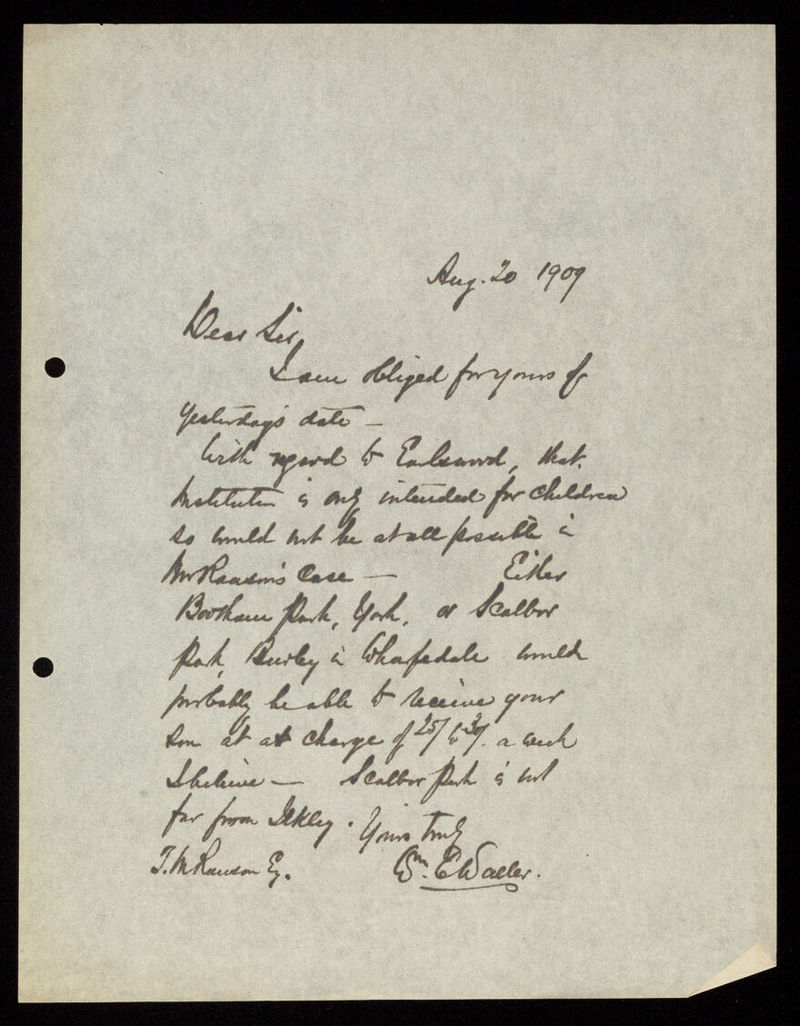 Aug. 20 1909
Dear Sir,
I am obliged for yours of
yesterday's date —
With regard to Earlswood, that
Institution is only intended for children
so would not be at all possible in
Mr Rawson's case — Either
Bootham Park, York, or Scalbor
Park, Burley in Wharfedale would
probably be able to receive your
son at at charge of 25/ to 30/. a week
I believe — Scalbor Park is not
far from Ilkley. Yours truly
T. M Rawson Esq. Wm. E Waller.